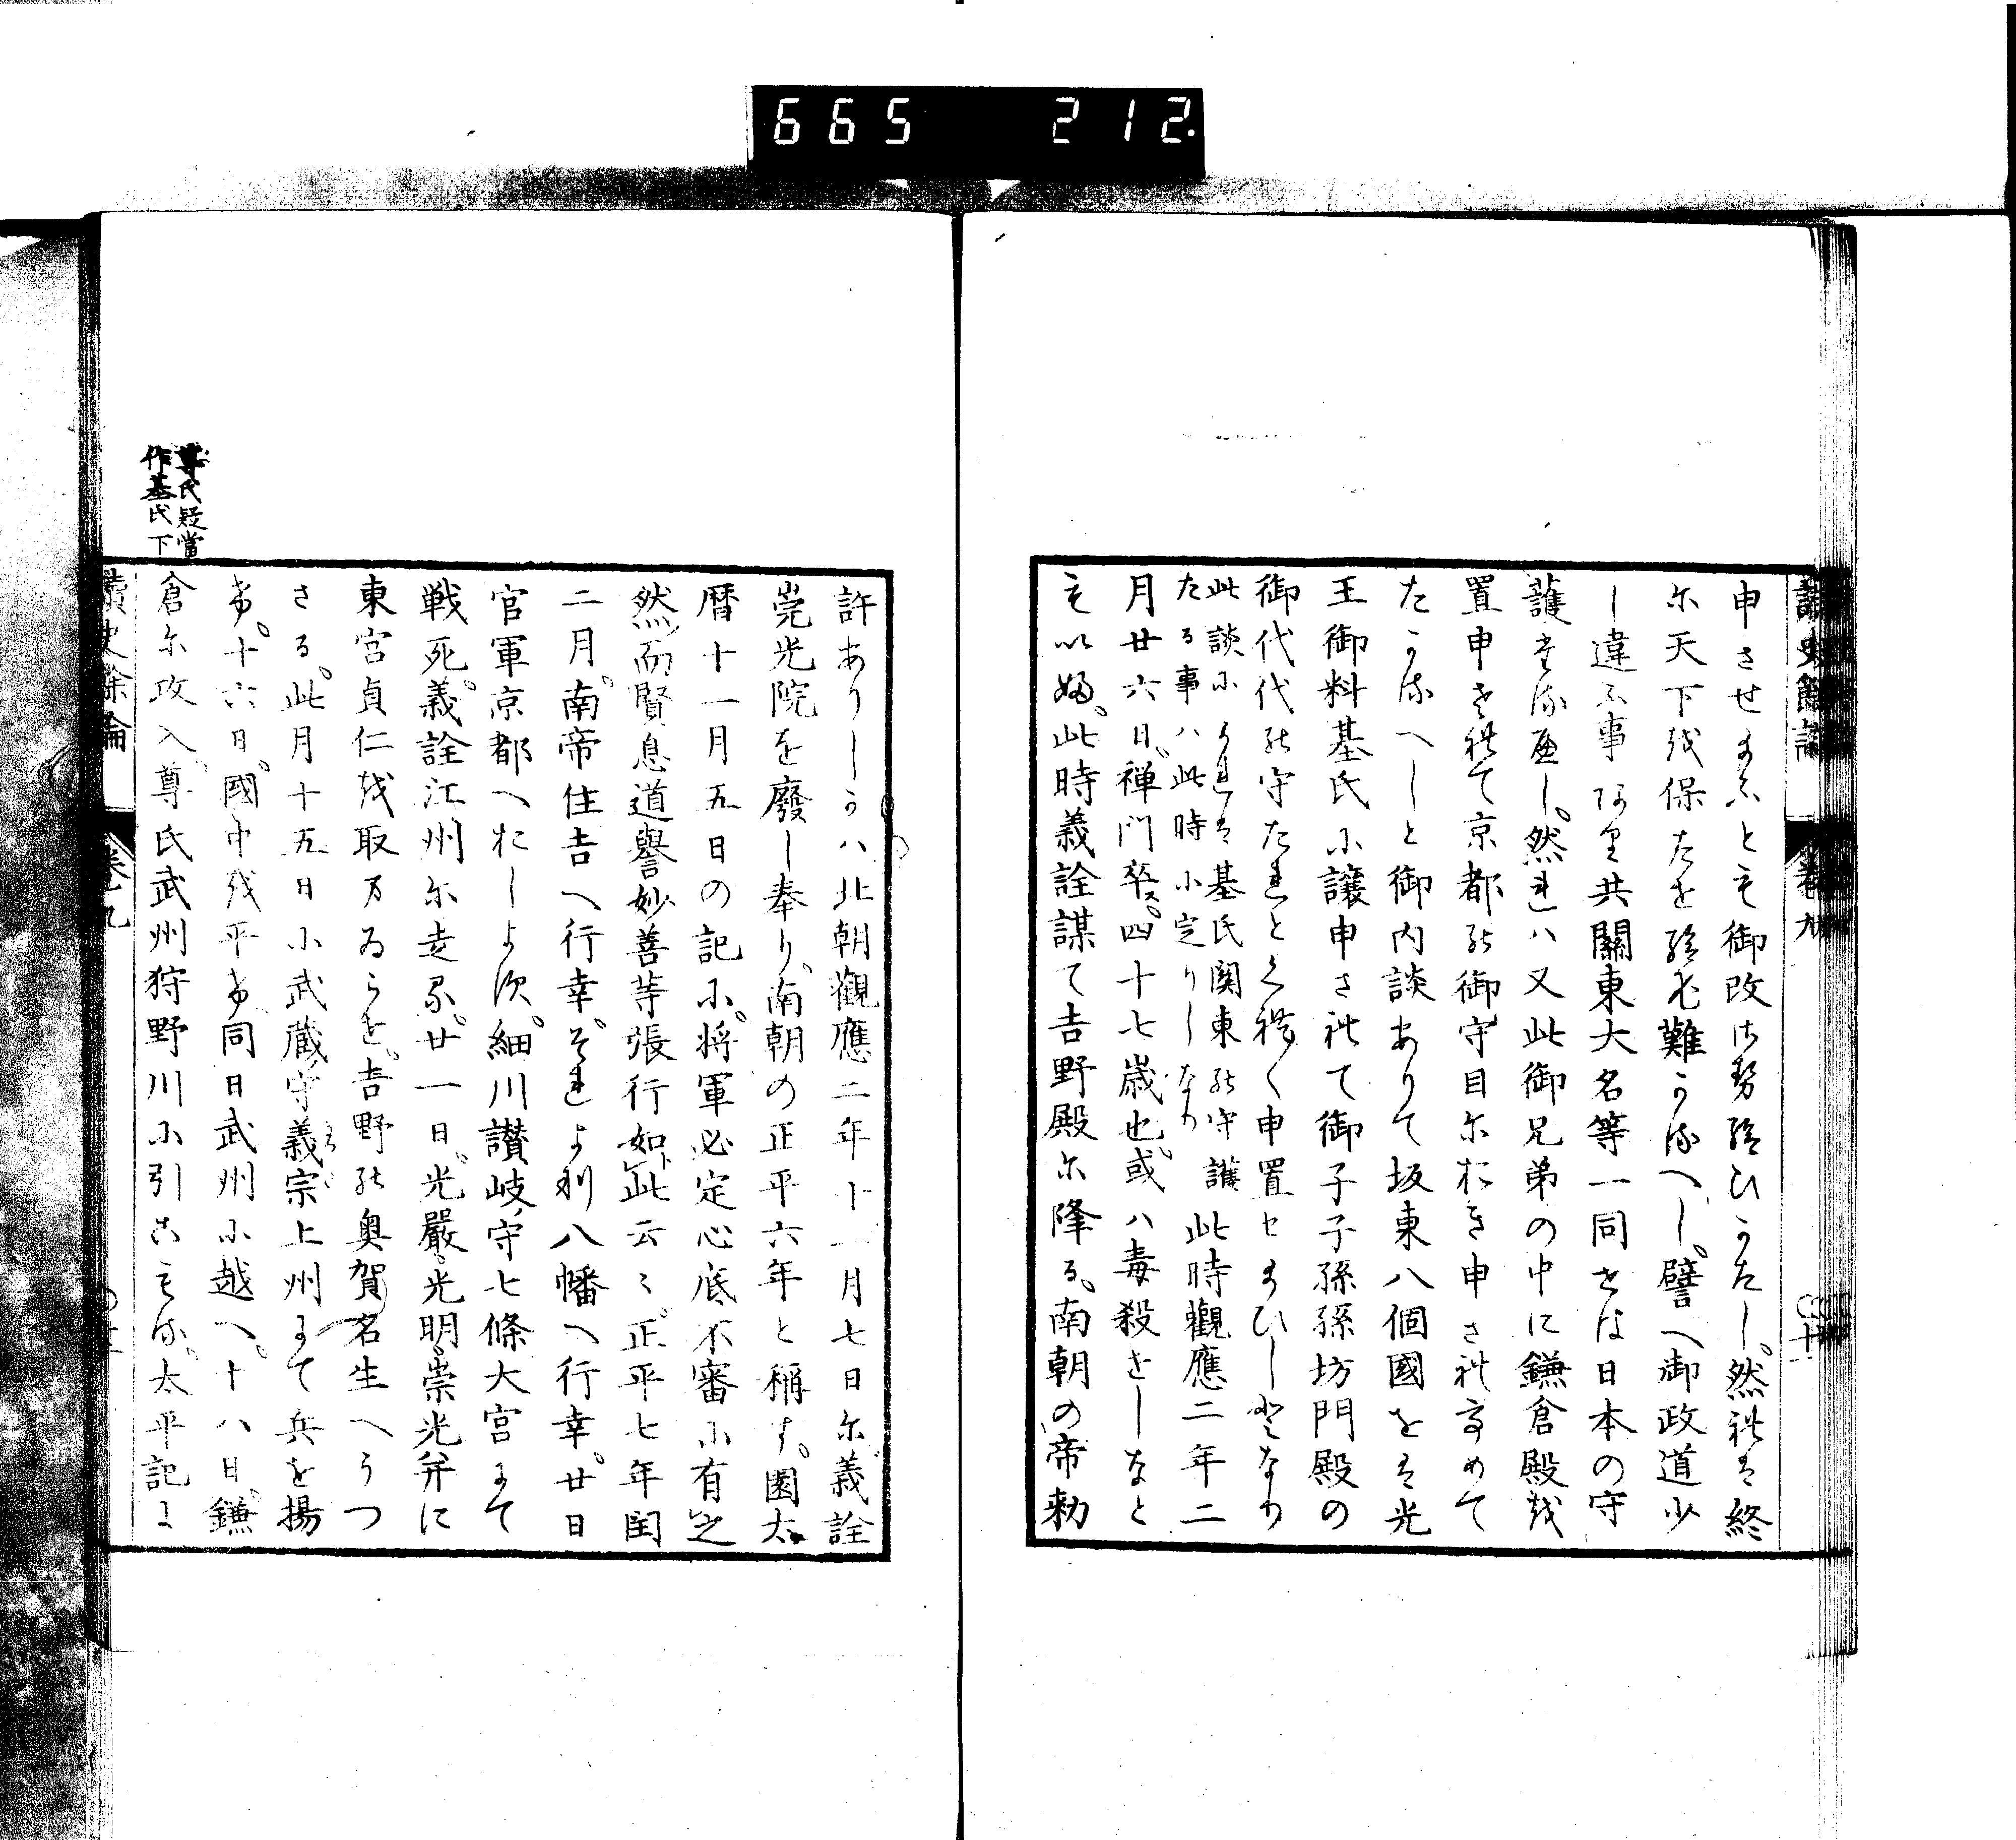 665 212.
讀史餘論 卷九
申させ給ふとも御改は努給ひかたし。然れは終
尓天下越保たせ給者難かるへし。譬へ御政道少
し違ふ事阿里共關東大名等一同せは日本の守
護たるへし。然連ハ又此御兄弟の中に鎌倉殿越
置申させて京都能御守目尓おき申され多めて
たかるへしと御内談ありて坂東八個國をは光
王御料基氏尓譲申されて御子子孫孫坊門殿の
御代代能守たれとく禄く申置セ給ひし也なり
此談尓よれは基氏関東能守護
たる事ハ此時尓定りしなり
此時觀應二年二
月廿六日。禪門卒ス。四十七歳也。或ハ毒殺せしなと
もいふ。此時義詮謀て吉野殿尓降る。南朝の帝勅
許ありしかハ北朝觀應二年十一月七日尓義詮
崇光院を廢し奉り。南朝の正平六年と稱す。園太
暦十一月五日の記尓。将軍必定心底不審尓有之
然而賢息道譽妙善等張行如此云々。正平七年閏
二月。南帝住吉へ行幸。それより八幡へ行幸。廿日
官軍京都へおしよす。細川讃岐守七條大宮尓て
戦死。義詮江州尓走る。廿一日。光嚴光明崇光并に
東宮貞仁越取まゐらせ。吉野能奥賀名生へうつ
さる。此月十五日尓武蔵守義宗上州尓て兵を揚
け。十六日。國中残平け同日武州尓越へ。十八日。鎌
倉尓攻入。尊氏武州狩野川尓引こもる。太平記に
尊氏疑當
作基氏下
讀史餘論 卷之九